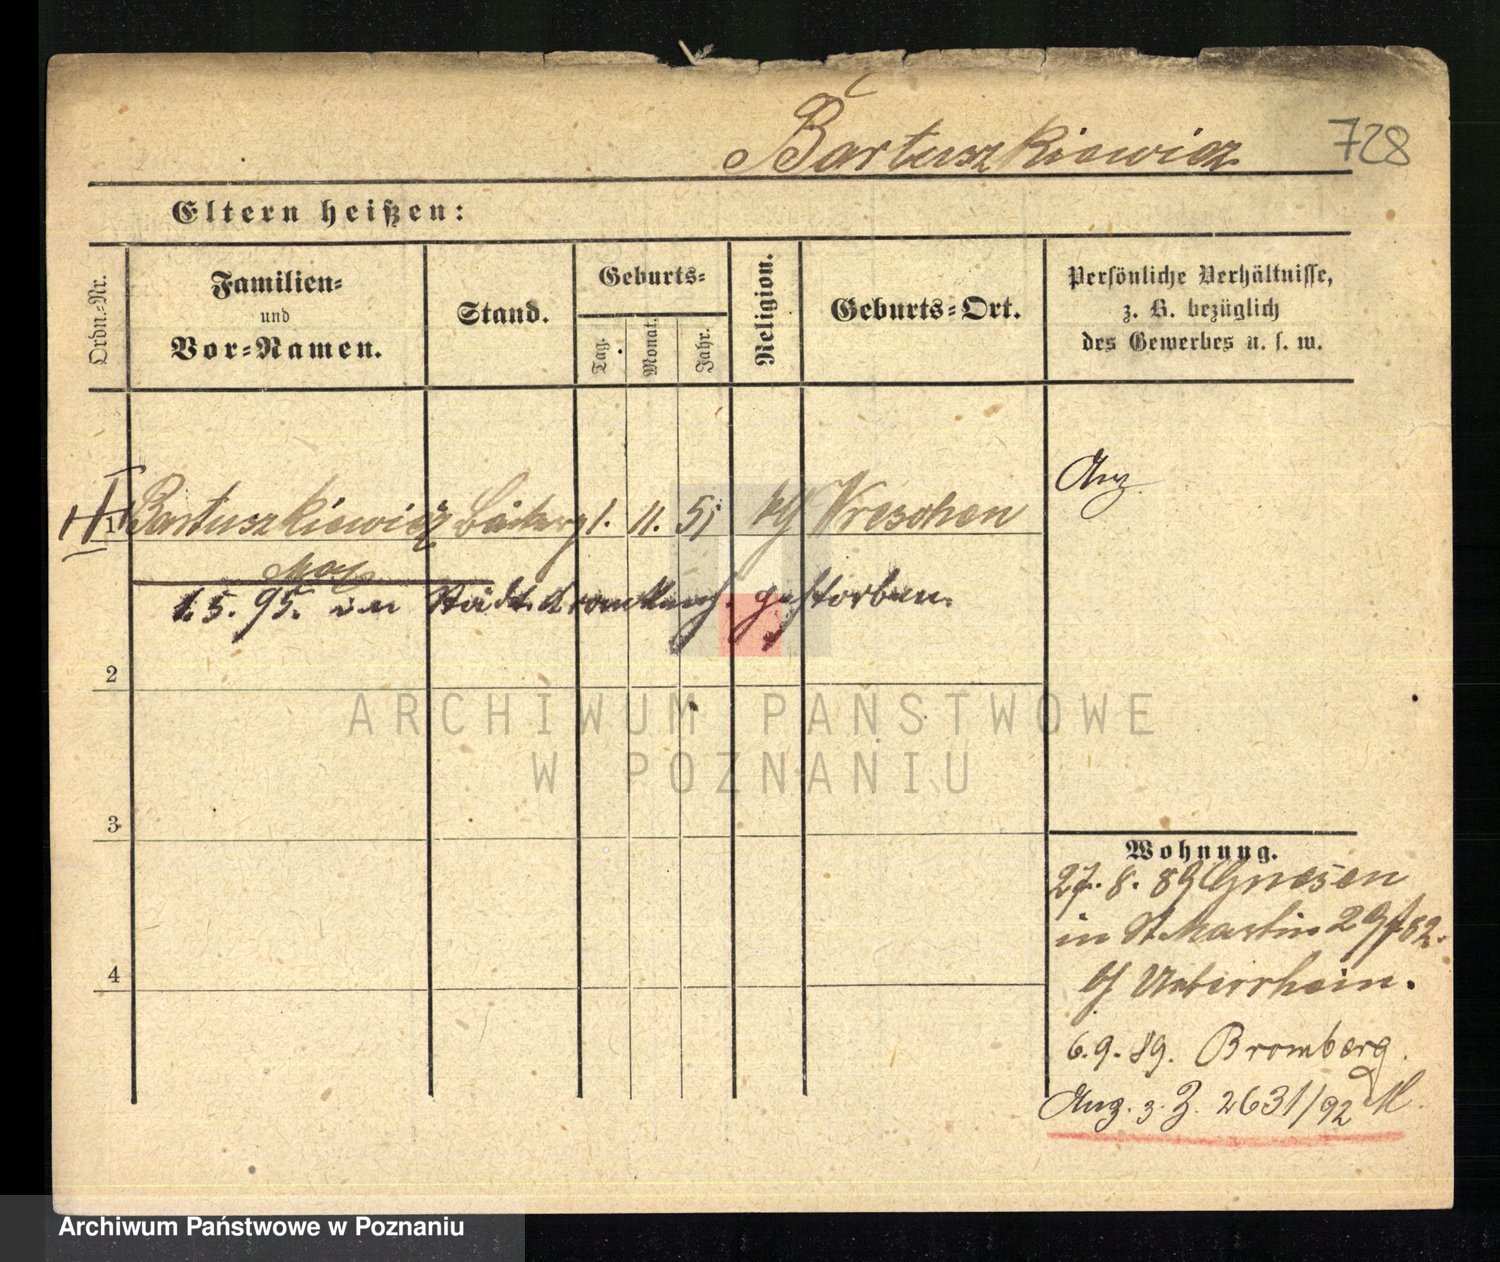 Bartuszkiewicz 728
Eltern heißen:
Ordn.-Nr.
Familien-
und
Vor-Namen.
Stand.
Geburts-
Tag.
Monat.
Jahr.
Religion.
Geburts-Ort.
Persönliche Verhältnisse,
z. B. bezüglich
des Gewerbes u. s. w.
1 Bartuszkiewicz 1. 11. 51 kth Wreschen
Max
1.5.95. im gestorben.
2
3
4
Wohnung.
27. 8. 89 Gnesen
in St Martin 29
b/ Unterrhein.
6.9.89. Bromberg.
Anz. z. Z. 2631/92
ARCHIWUM PAŃSTWOWE
W POZNANIU
Archiwum Państwowe w Poznaniu